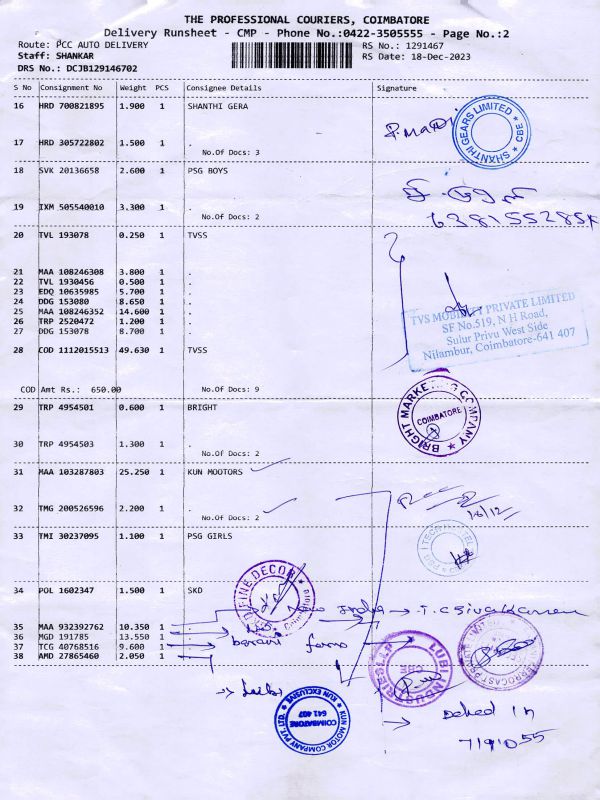 THE PROFESSIONAL COURIERS, COIMBATORE
Delivery Runsheet - CMP - Phone No.:0422-3505555 - Page No.:2
Route: PCC AUTO DELIVERY
RS No.: 1291467
Staff: SHANKAR
RS Date: 18-Dec-2023
DRS No.: DCJB129146702
S No Consignment No Weight PCS Consignee Details Signature
16 HRD 700821895 1.900 1 SHANTHI GERA
SHANTHI GEARS LIMITED * CBE *
17 HRD 305722802 1.500 1 .
No.Of Docs: 3
18 SVK 20136658 2.600 1 PSG BOYS
19 IXM 505540010 3.300 1 .
No.Of Docs: 2
20 TVL 193078 0.250 1 TVSS
21 MAA 108246308 3.800 1 .
22 TVL 1930456 0.500 1 .
23 EDQ 10635985 5.700 1 .
24 DDG 153080 8.650 1 .
25 MAA 108246352 14.600 1 .
26 TRP 2520472 1.200 1 .
27 DDG 153078 8.700 1 .
TVS MOBILITY PRIVATE LIMITED
SF No.519, N H Road,
Sulur Privu West Side
Nilambur, Coimbatore-641 407
28 COD 1112015513 49.630 1 TVSS
COD Amt Rs.: 650.00 No.Of Docs: 9
29 TRP 4954501 0.600 1 BRIGHT
BRIGHT MARKETING COMPANY * COIMBATORE
30 TRP 4954503 1.300 1 .
No.Of Docs: 2
31 MAA 103287803 25.250 1 KUN MOOTORS
32 TMG 200526596 2.200 1 .
No.Of Docs: 2
33 TMI 30237095 1.100 1 PSG GIRLS
34 POL 1602347 1.500 1 SKD
35 MAA 932392762 10.350 1
36 MGD 191785 13.550 1
37 TCG 40768516 9.600 1
38 AMD 27865460 2.050 1
LUBI INDUSTRIES LLP
CBE
KUN MOTOR COMPANY PVT. LTD. * KUN EXCLUSIVE
COIMBATORE
641 407